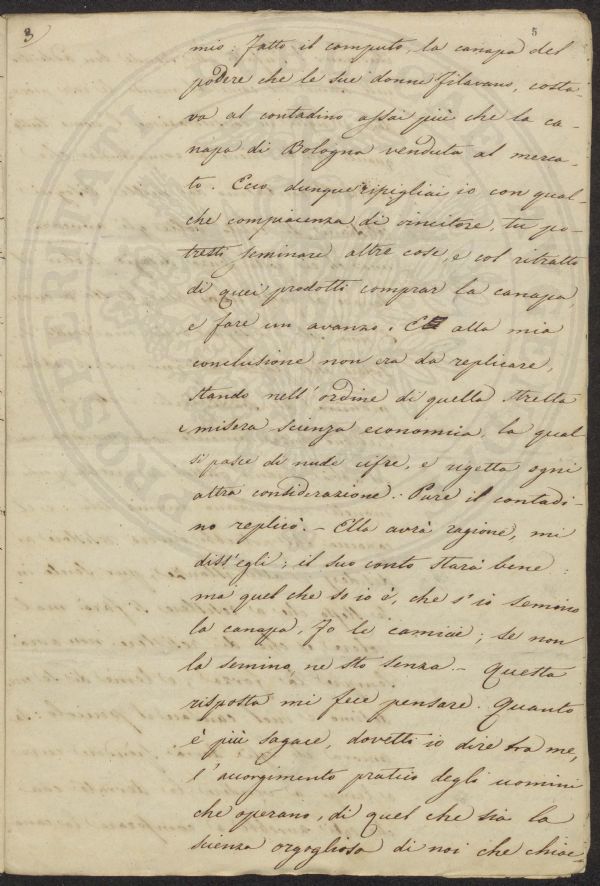 3
5
mio. Fatto il computo, la canapa del
podere che le sue donne filavano, costa-
va al contadino assai più che la ca-
napa di Bologna venduta al merca-
to. Ecco dunque ripigliai io con qual-
che compiacenza di vincitore, tu po-
tresti seminare altre cose, e col ritratto
di quei prodotti comprar la canapa,
e fare un avanzo. E alla mia
conclusione non era da replicare,
stando nell'ordine di quella stretta
misera scienza economica, la qual
si pasce di nude cifre, e rigetta ogni
altra considerazione. Pure il contadi-
no replicò. – Ella avrà ragione, mi
diss'egli; il suo conto starà bene:
ma quel che so io è, che s'io semino
la canapa, fo le camicie; se non
la semino, ne sto senza. – Questa
risposta mi fece pensare. Quanto
è più sagace, dovetti io dire tra me,
l'accorgimento pratico degli uomini
che operano, di quel che sia la
scienza orgogliosa di noi che chiac-